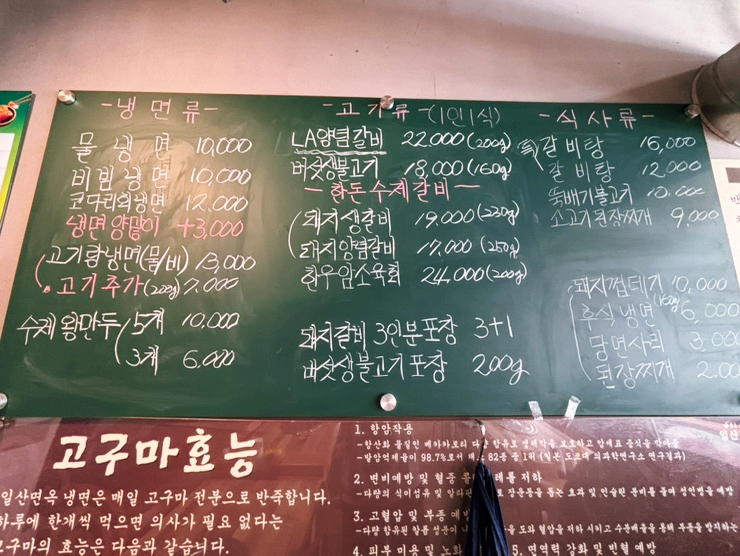 -냉면류-
물냉면 10,000
비빔냉면 10,000
코다리회냉면 12,000
냉면 양많이 +3,000
고기랑냉면(물/비) 13,000
고기추가(200g) 7,000
수제왕만두 5개 10,000
3개 6,000
-고기류-(1인1식)
LA양념갈비 22,000(200g)
버섯생불고기 18,000(160g)
-한돈수제갈비-
돼지생갈비 19,000(230g)
돼지양념갈비 17,000(250g)
한우암소육회 24,000(200g)
돼지갈비 3인분포장 3+1
버섯생불고기포장 200g
-식사류-
특 갈비탕 15,000
갈비탕 12,000
뚝배기불고기 10,000
소고기된장찌개 9,000
돼지껍데기 10,000
후식냉면(160g) 6,000
당면사리 3,000
된장찌개 2,000
고구마효능
일산면옥 냉면은 매일 고구마 전분으로 반죽합니다.
하루에 한개씩 먹으면 의사가 필요 없다는
고구마의 효능은 다음과 같습니다.
1. 항암작용
-발암억제율이 98.7%로서 82종 중 1위 (일본 도쿄대 의과학연구소 연구결과)
2. 변비예방 및 혈중 콜레스테롤 저하
-다량의 식이섬유 및 장운동을 돕는 효과 및 인슐린 분비를 줄여 성인병을 예방
3. 고혈압 및 부종 예방
-다량 함유된 칼륨 성분이 혈압을 저하 시키고 수분배출을 통해 부종을 방지하는
4. 피부 미용 및 노화
5. 면역력 강화 및 빈혈 예방
일산